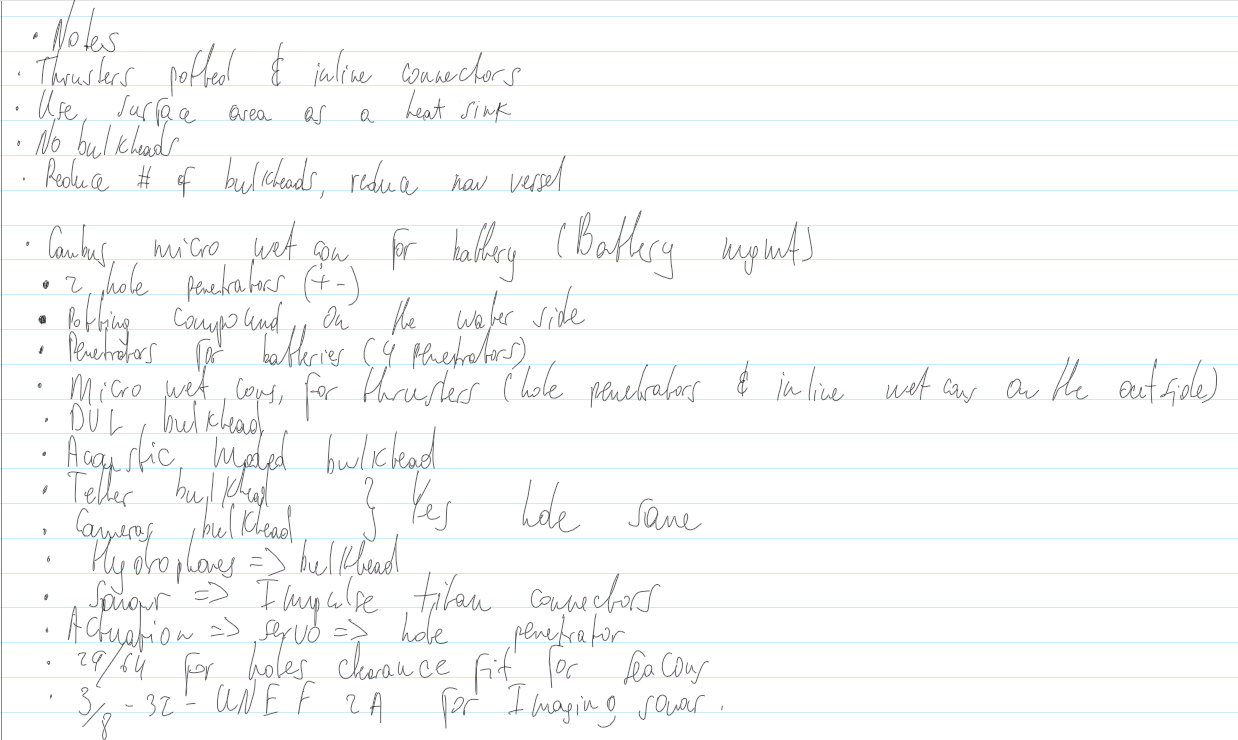 · Notes
· Thrusters potted & inline connectors
· Use surface area as a heat sink
· No bulkheads
· Reduce # of bulkheads, reduce nav vessel
· Canbus micro wet con for battery (Battery mgmt)
· 2 hole penetrators (+-)
· Potting compound on the water side
· Penetrators for batteries (4 penetrators)
· Micro wet cons, for thrusters (hole penetrators & inline wet cons on the outside)
· DVL bulkhead
· Acoustic bulkhead
· Tether bulkhead } Yes hole same
· Cameras bulkhead
· Hydrophones => bulkhead
· Sonar => Impulse titan connectors
· Actuation => servo => hole penetrator
· 29/64 for holes clearance fit for seacons
· 3/8 - 32 - UNEF 2A for Imaging sonar.